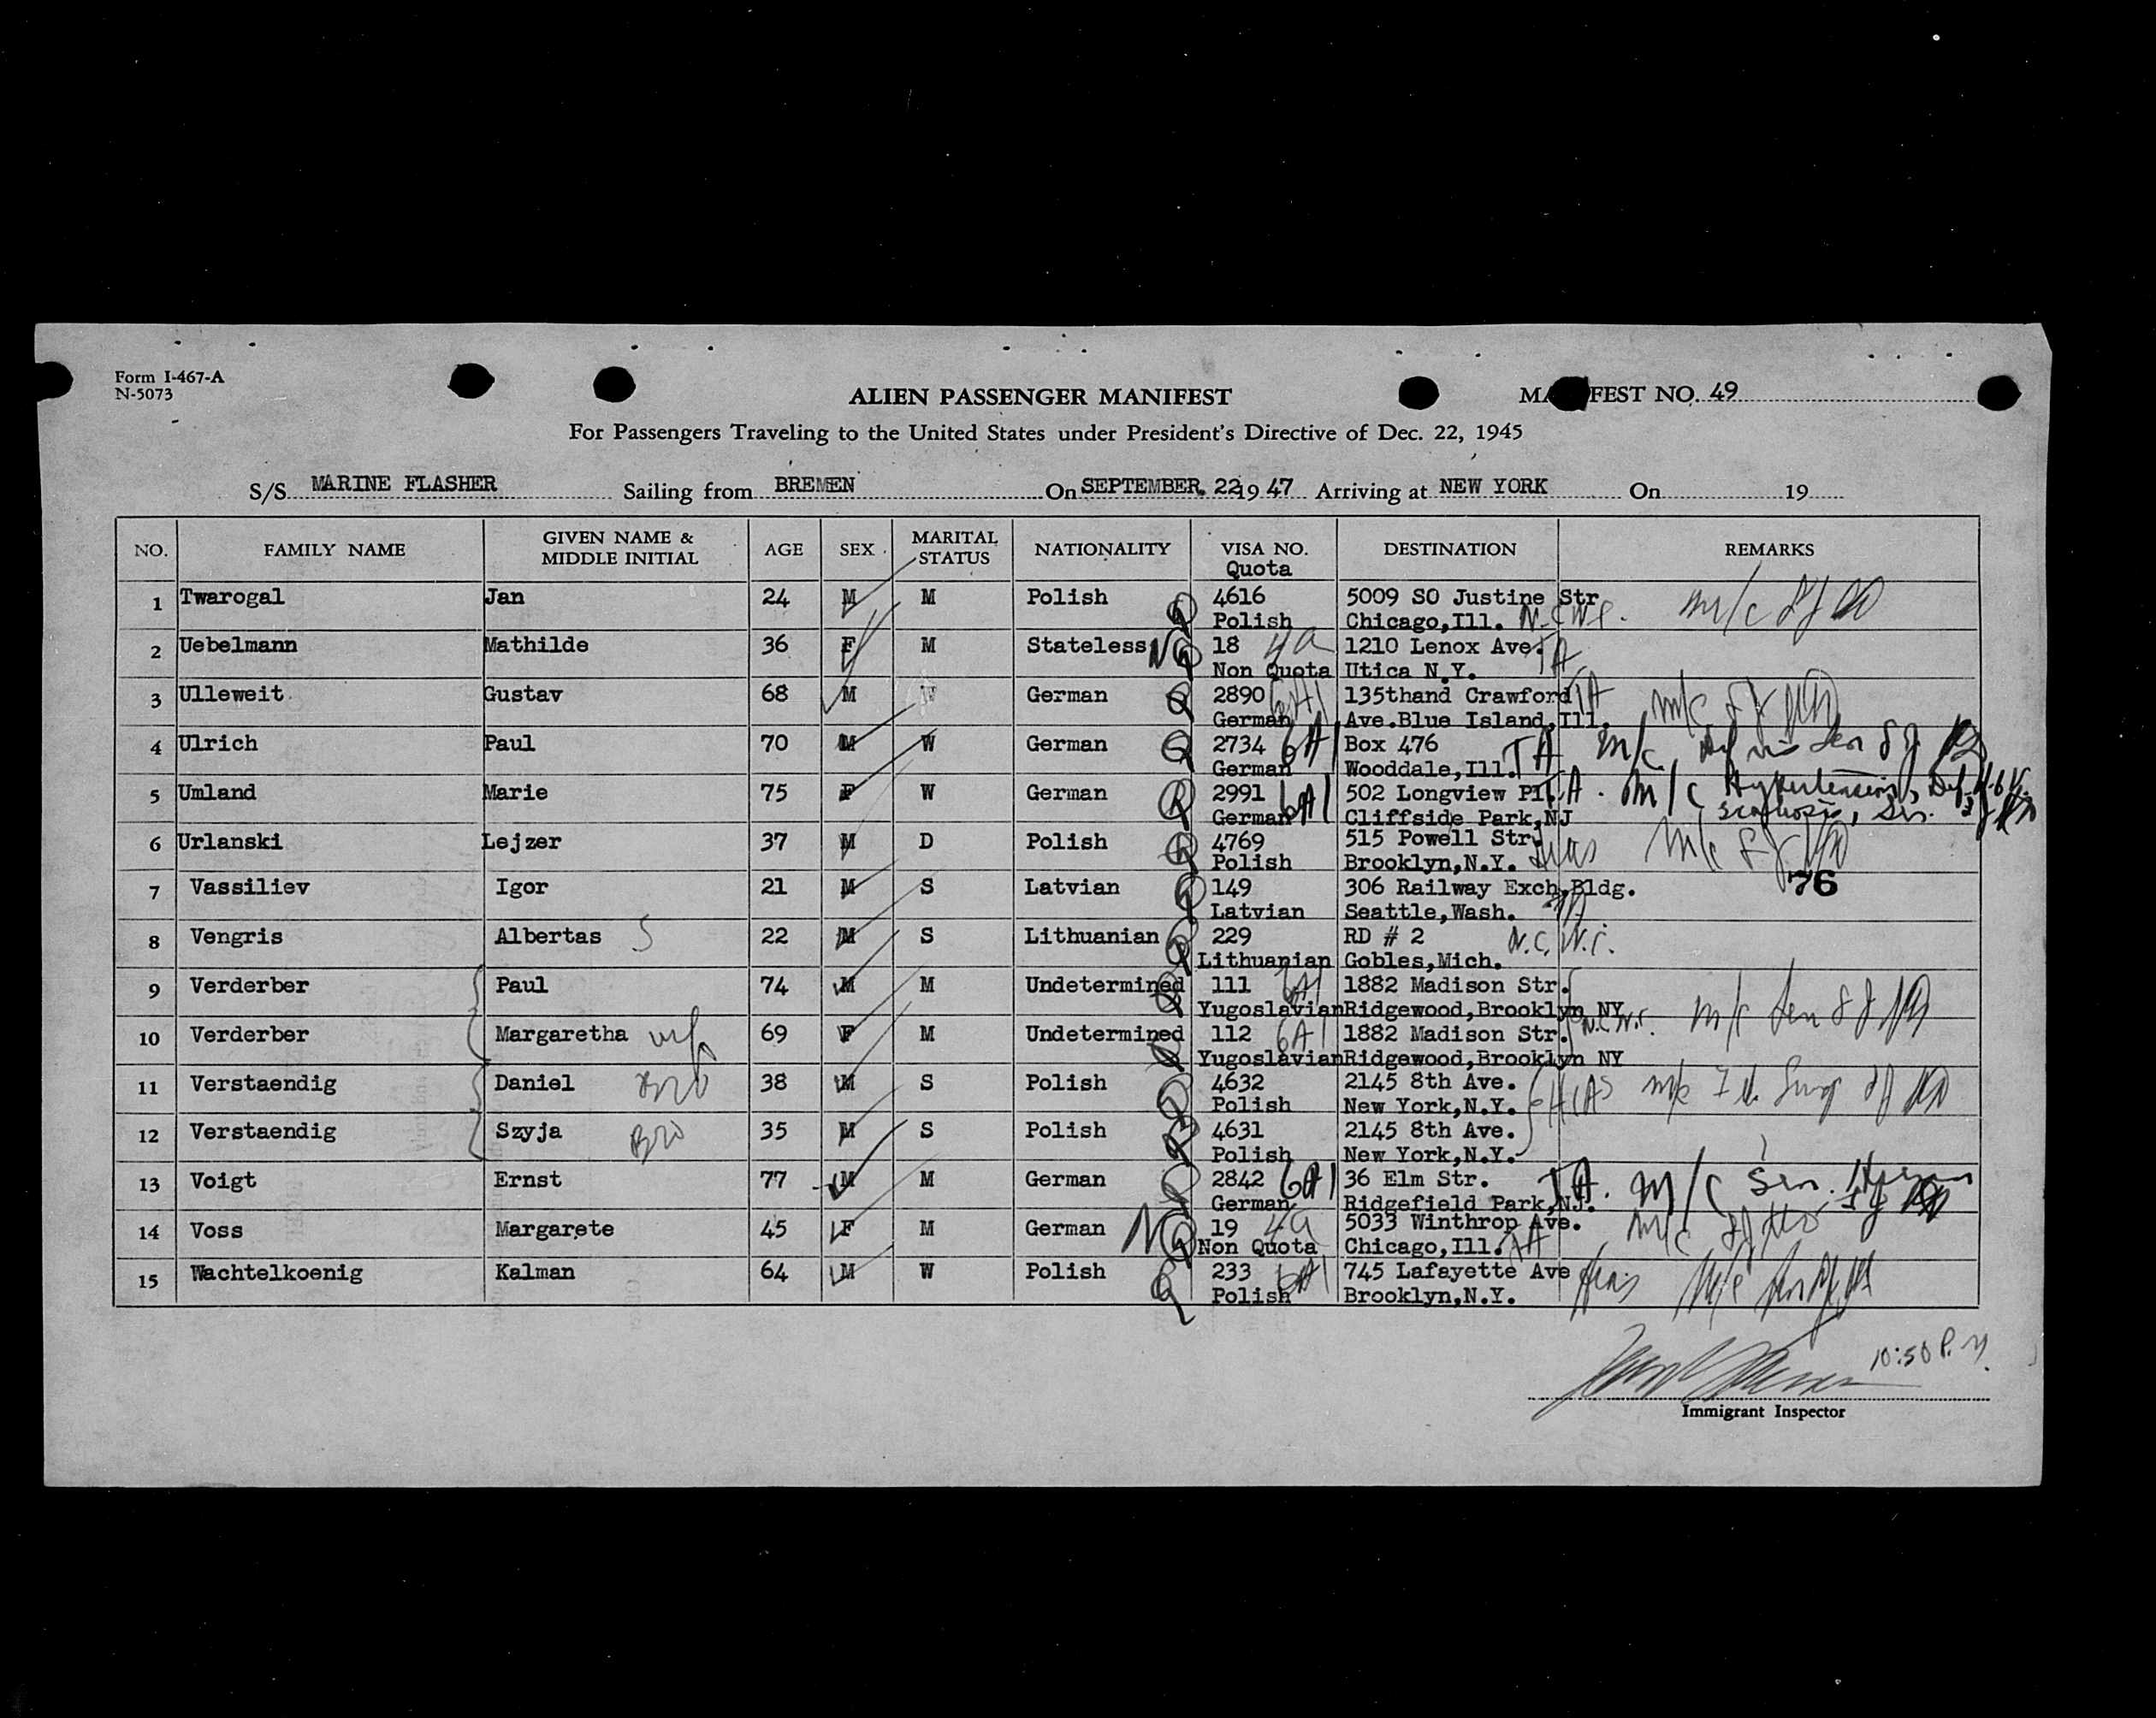 Form I-467-A
N-5073
ALIEN PASSENGER MANIFEST
MA FEST NO. 49
For Passengers Traveling to the United States under President's Directive of Dec. 22, 1945
S/S MARINE FLASHER Sailing from BREMEN On SEPTEMBER. 22 19 47 Arriving at NEW YORK On 19
NO. FAMILY NAME GIVEN NAME & MIDDLE INITIAL AGE SEX MARITAL STATUS NATIONALITY VISA NO. Quota DESTINATION REMARKS
1 Twarogal Jan 24 M M Polish Q 4616 5009 SO Justine Str m/c
Polish Chicago,Ill.
2 Uebelmann Mathilde 36 F M Stateless NQ 18 4a 1210 Lenox Ave. TA
Non Quota Utica N.Y.
3 Ulleweit Gustav 68 M German Q 2890 6A1 135thand Crawford TA m/c
German Ave.Blue Island,Ill.
4 Ulrich Paul 70 M W German Q 2734 6A1 Box 476 TA m/c
German Wooddale,Ill.
5 Umland Marie 75 F W German Q 2991 6A1 502 Longview Pl. m/c Hypertension,
German Cliffside Park,NJ
6 Urlanski Lejzer 37 M D Polish Q 4769 515 Powell Str. m/c
Polish Brooklyn,N.Y.
76
7 Vassiliev Igor 21 M S Latvian Q 149 306 Railway Exch.Bldg.
Latvian Seattle,Wash.
8 Vengris Albertas S 22 M S Lithuanian Q 229 RD # 2
Lithuanian Gobles,Mich.
9 Verderber Paul 74 M M Undetermined Q 111 6A1 1882 Madison Str. m/c
Yugoslavian Ridgewood,Brooklyn NY
10 Verderber Margaretha 69 F M Undetermined Q 112 6A1 1882 Madison Str.
Yugoslavian Ridgewood,Brooklyn NY
11 Verstaendig Daniel Bro 38 M S Polish Q 4632 2145 8th Ave. HIAS m/c
Polish New York,N.Y.
12 Verstaendig Szyja Bro 35 M S Polish Q 4631 2145 8th Ave.
Polish New York,N.Y.
13 Voigt Ernst 77 M M German Q 2842 6A1 36 Elm Str. TA. m/c Sen.
German Ridgefield Park,NJ.
14 Voss Margarete 45 F M German NQ 19 4a 5033 Winthrop Ave. TA m/c
Non Quota Chicago,Ill.
15 Wachtelkoenig Kalman 64 M W Polish Q 233 6A1 745 Lafayette Ave Hias m/c
Polish Brooklyn,N.Y.
10:50 P.M.
Immigrant Inspector